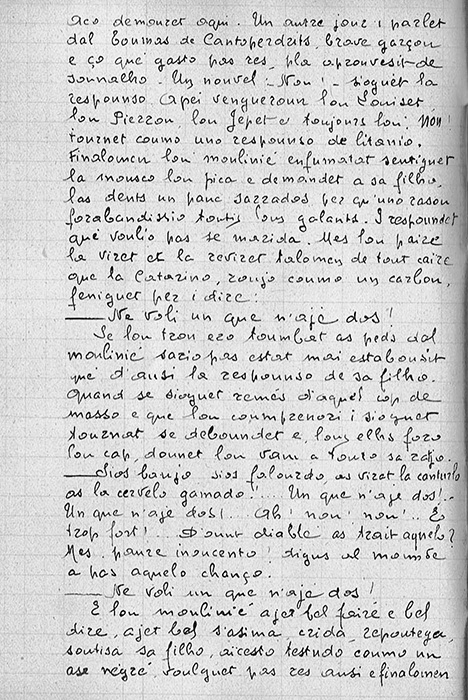 aco demouret aqui. Un autre jour i parlet
dal Toumas de Cantoperdrits, brave garçon
e ço que gasto pas res, pla aprouvesit de
sounalho. Un nouvel : Non ! _ sioguet la
respounso. Apei vengueroun lou Louiset
lou Pierrou, lou Jepet e toujours lou : Non !
tournet coumo uno respounso de litanio.
Finalomen lou moulinié enfumalat sentiguet
la mousco lou pica e demandet a sa filho,
las dents un pauc sarrados, per qu'uno rasou
forabandissio toutis lous galants. I respoundet
que voulio pas se marida. Mes lou paire
la viret et la reviret talomen de tout caire
que la Catarino, roujo coumo un carbou,
feniguet per i dire :
— Ne voli un que n'ajé dos !
Se lou tron ero toumbat as peds dal
moulinié sario pas estat mai estabousit
que d'ausi la respounso de sa filho.
Quand se sioguet remés d'aquel cop de
masso e que lou coumprenori i sioguet
tournat se deboundet e, lous ellis foro
lou cap, dounet lou vam a touto sa rajo.
— Sios baujo, sios falourdo, as virat la
as la cervelo gamado !... Un que n'aje dos !..
Un que n'aje dos !... Ah ! non ! non !.. E
trop fort !... D'ount diable as trait aquelo ?
Mes, paure inoucento ! digus al mounde
a pas aquelo chanço.
— Ne voli un que n'ajé dos !
E lou moulinié ajet bel faire e bel
dire, ajet bel s'asima, crida, repoutega,
soutisa sa filho, aicesto testudo coumo un
ase négré voulguet pas res ausi e finalomen